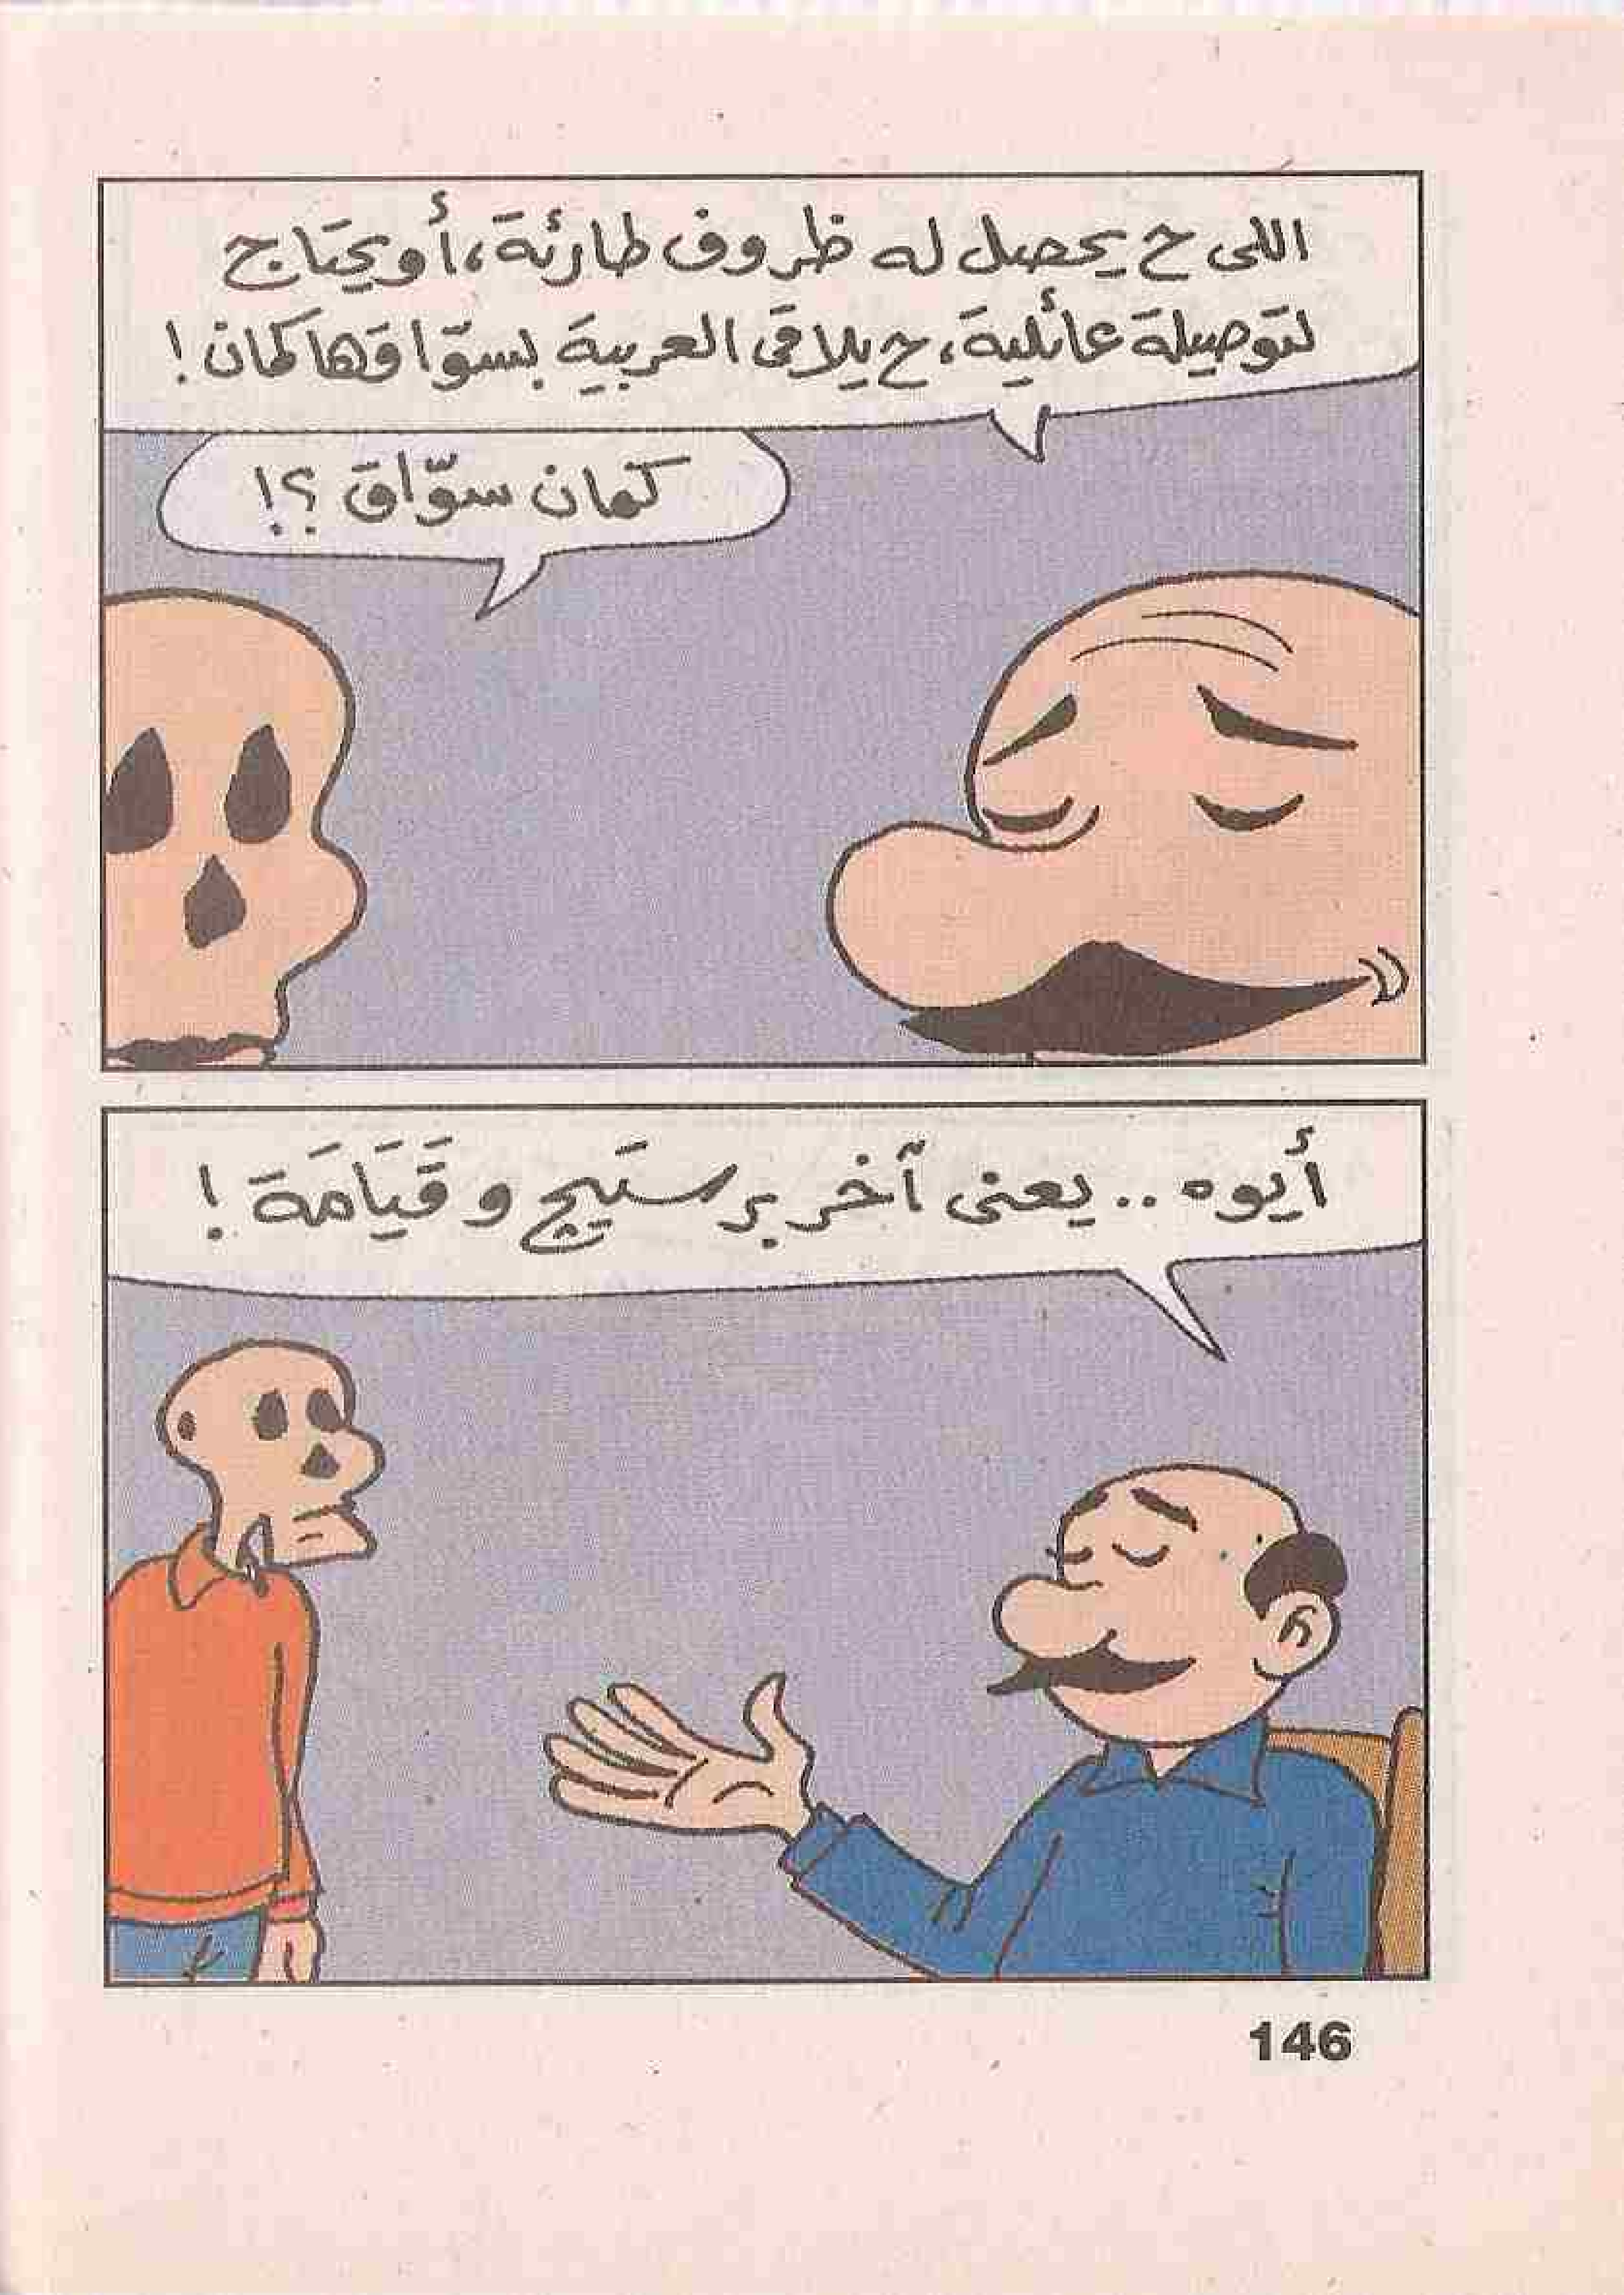 اللى ح يحصل له ظروف طارئة، أو يحتاج
لتوصيلة عائلية، ح يلاقى العربية بسوّاقها كمان!
كمان سوّاق؟!
أيوه.. يعنى آخر برستيچ وقَيَامَة!
146